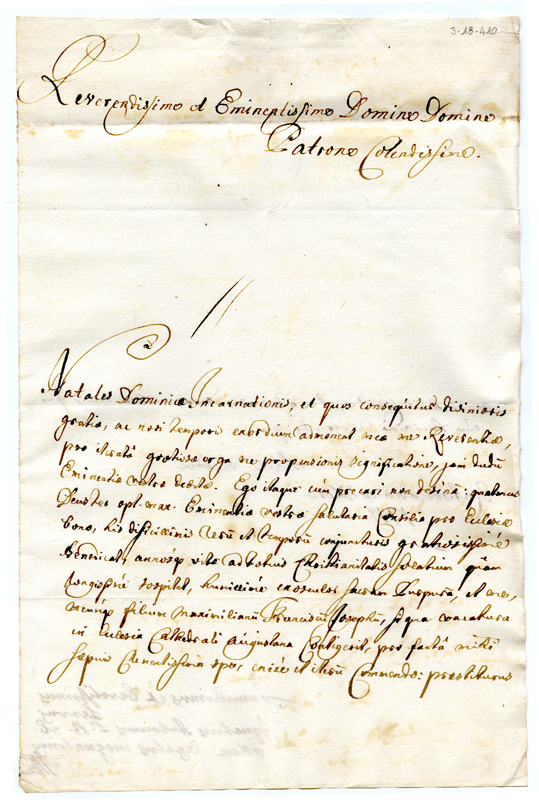 3-13-410
Reverendissime et Eminentissime Domine Domine
Patrone Colendissime.
Natales Dominicæ Incarnationis, et quos consequitur divinioris
gratia, ac novi temporis exordium admonent meæ me Reverentiæ,
pro iterata gratiosæ erga me propensionis significatione, jam dudum
Eminentiæ vestræ debitæ. Ego itaque cùm precari non desinam, quatenus
Deus ter opt. max. Eminentiæ vestræ salutaria Consilia pro Ecclesiæ
bono, his difficilimis rerum et temporum conjuncturis gratiosissimè
benedicat, annosque vitæ ad totius Christianitatis solatium quàm
longissimè sospitet, humillimè exosculor sacram Purpuram, et me,
meumque filium Maximilianum Franciscum Josephum, si qua vacatura
in Ecclesia Cathedrali Augustana Contigerit, pro facta mihi
sæpius Clementissima spe, enixè et iterum Commendo: præstiturus